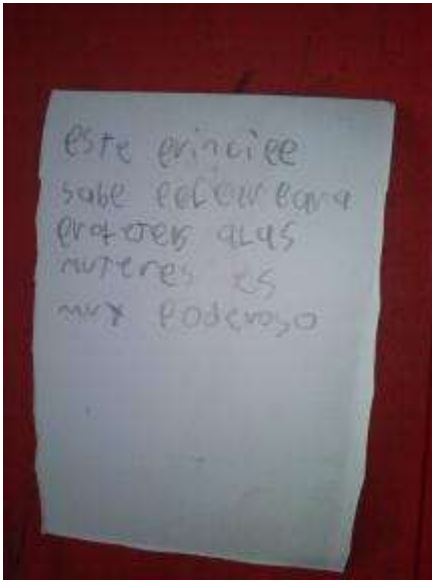 este principe
sabe pelear para
proteter alas
muteres es
muy poderoso